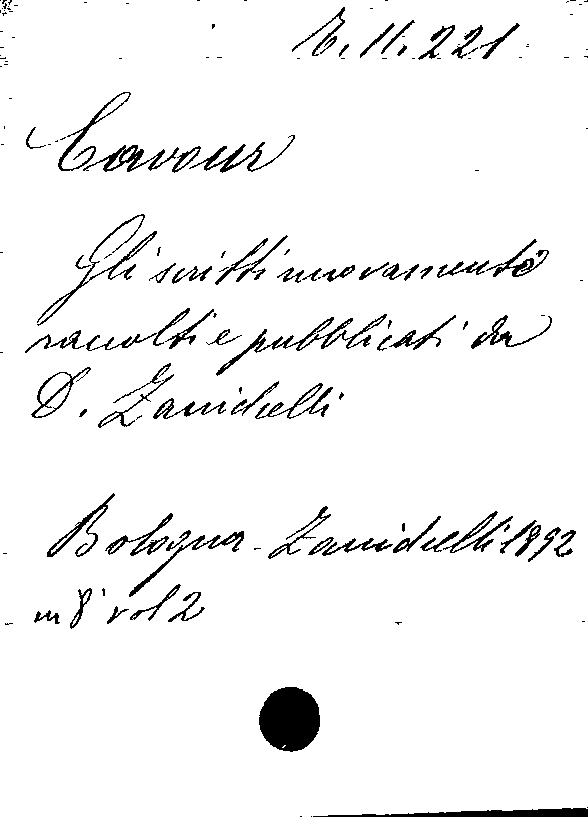 E.11.221
Cavour
Gli scritti nuovamente
raccolti e pubblicati da
D. Zanichelli
Bologna - Zanichelli 1892
in 8° vol 2